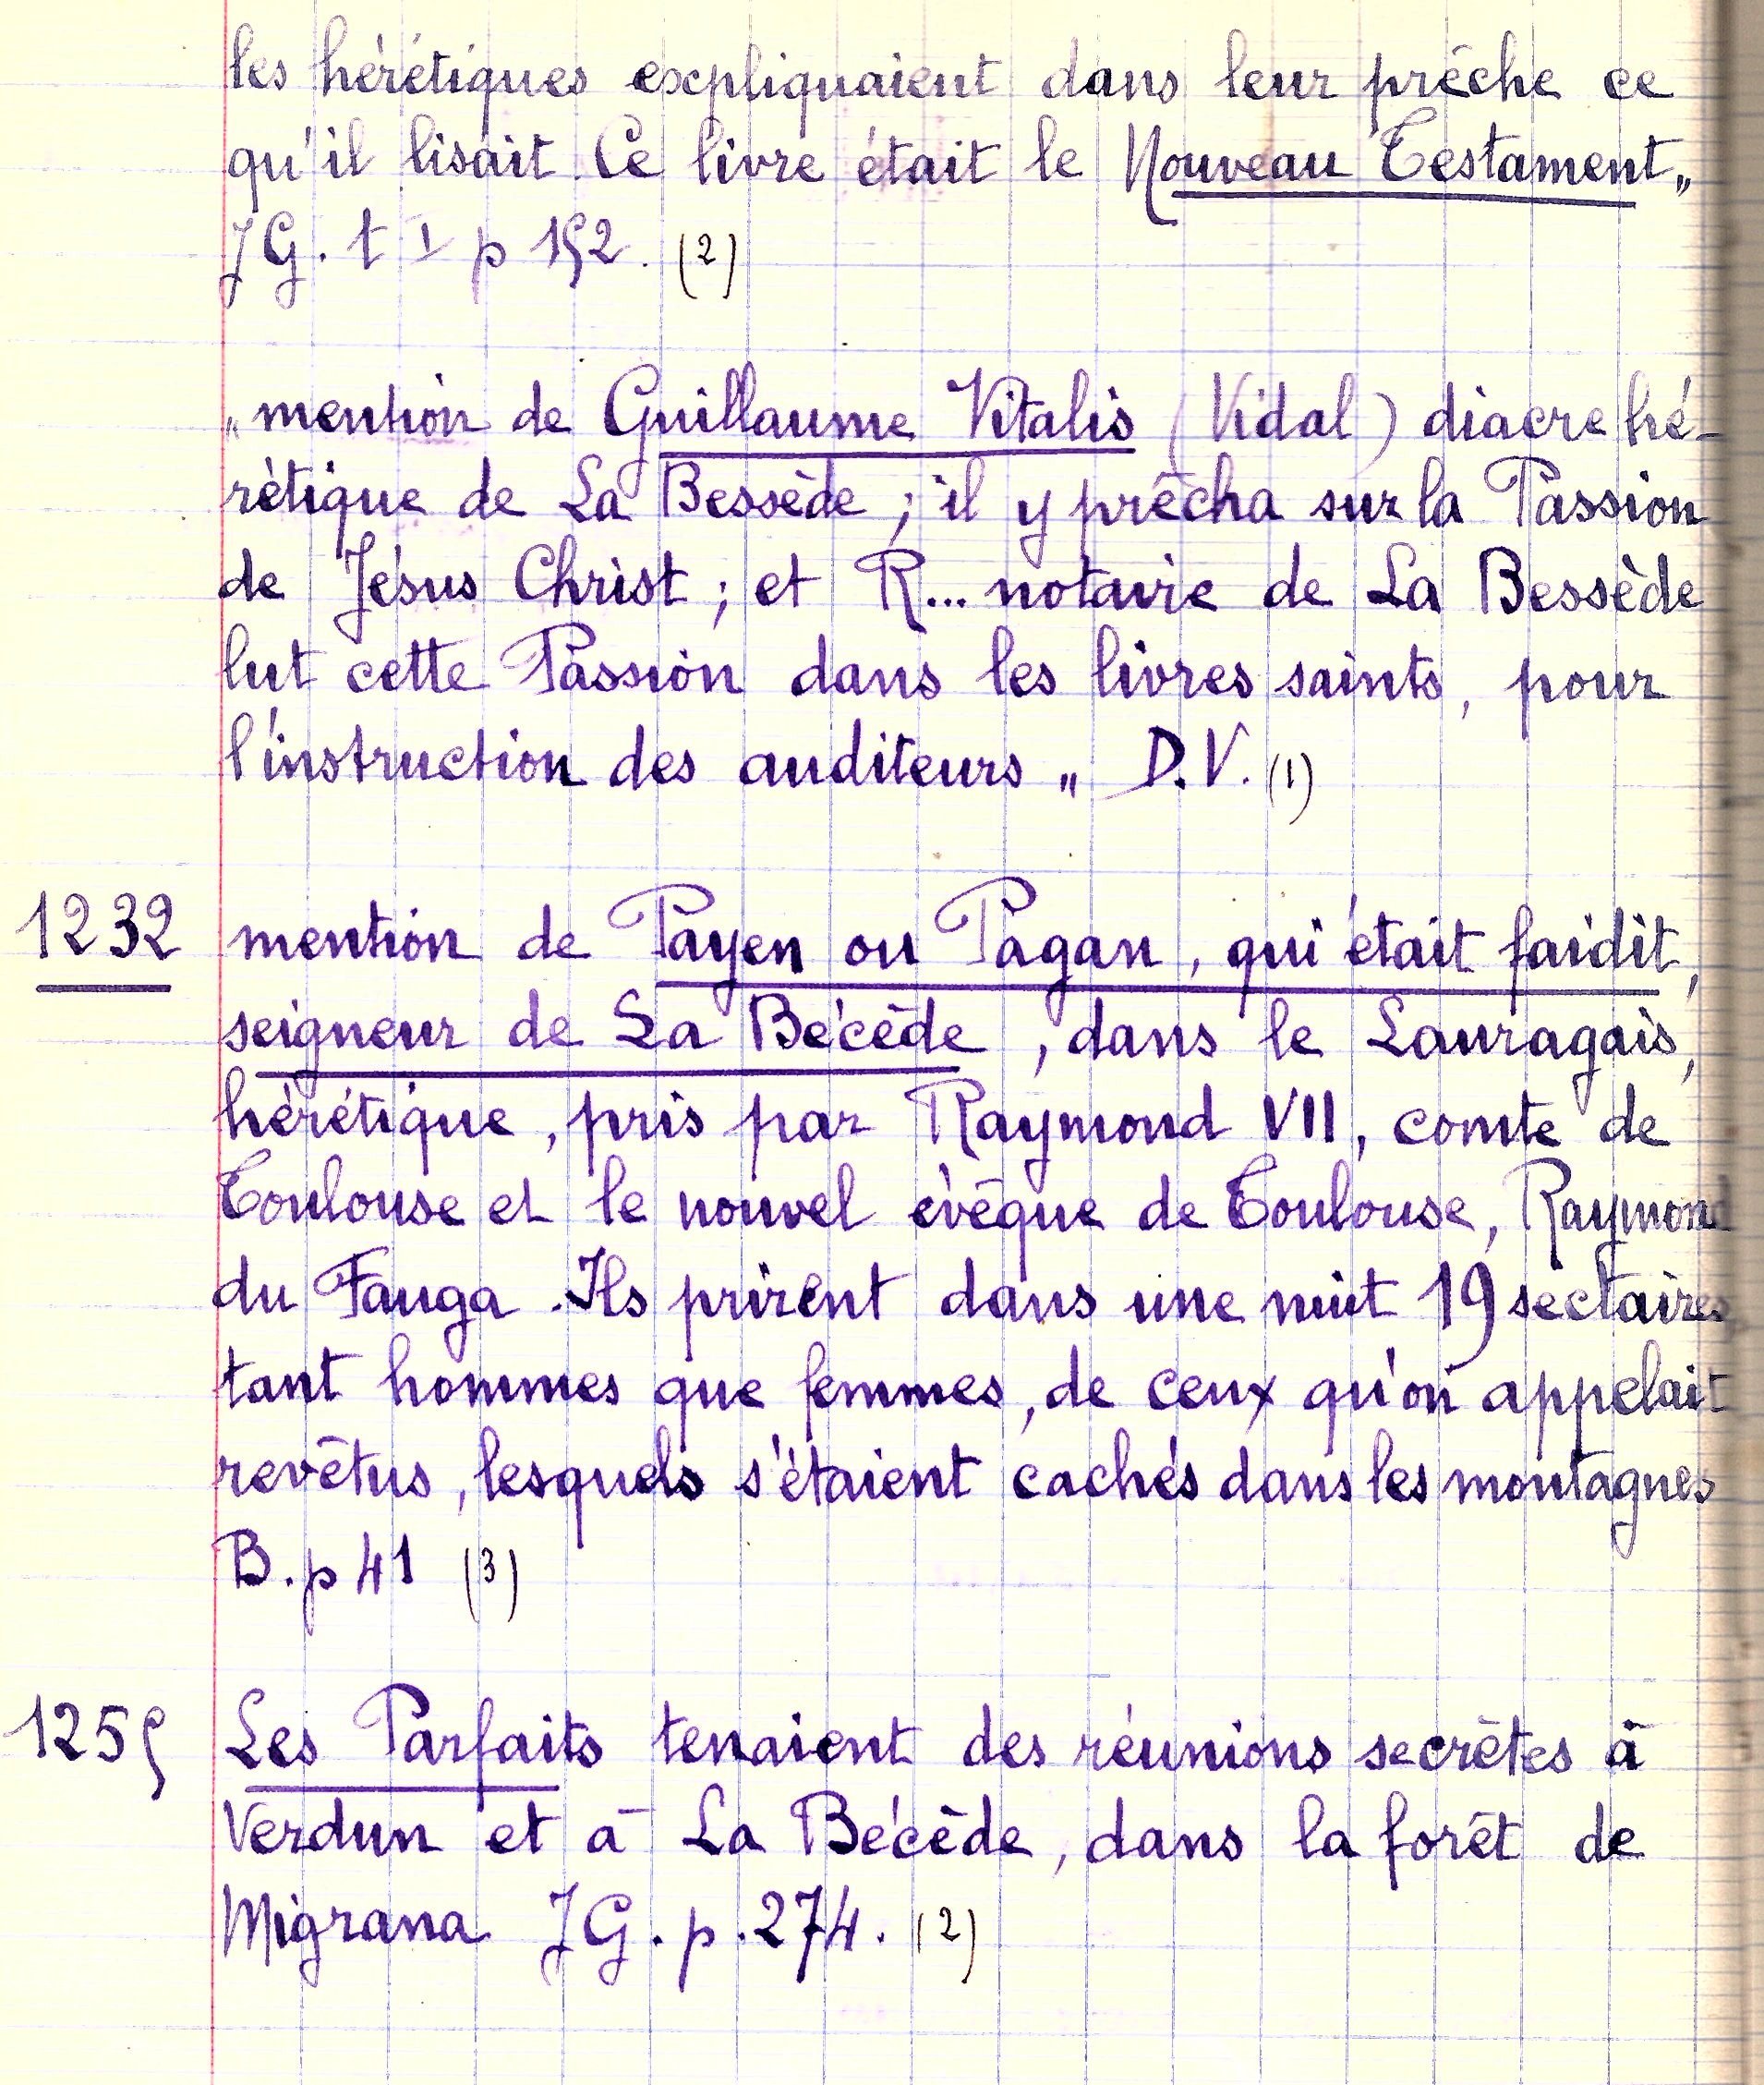 les hérétiques expliquaient dans leur prêche ce
qu'il lisait. Ce livre était le Nouveau Testament„
JG. t I p 152. (2)
„mention de Guillaume Vitalis (Vidal) diacre hé-
rétique de La Bessède ; il y prêcha sur la Passion
de Jésus Christ ; et R... notaire de La Bessède
lut cette Passion dans les livres saints, pour
l'instruction des auditeurs „ D.V. (1)
1232 mention de Payen ou Pagan, qui était faidit,
seigneur de La Bécède, dans le Lauragais,
hérétique, pris par Raymond VII, comte de
Toulouse et le nouvel évêque de Toulouse, Raymond
du Fauga. Ils prirent dans une nuit 19 sectaires
tant hommes que femmes, de ceux qu'on appelait
revêtus, lesquels s'étaient cachés dans les montagnes
B. p 41 (3)
1255 Les Parfaits tenaient des réunions secrètes à
Verdun et à La Bécède, dans la forêt de
Migrana JG. p. 274. (2)